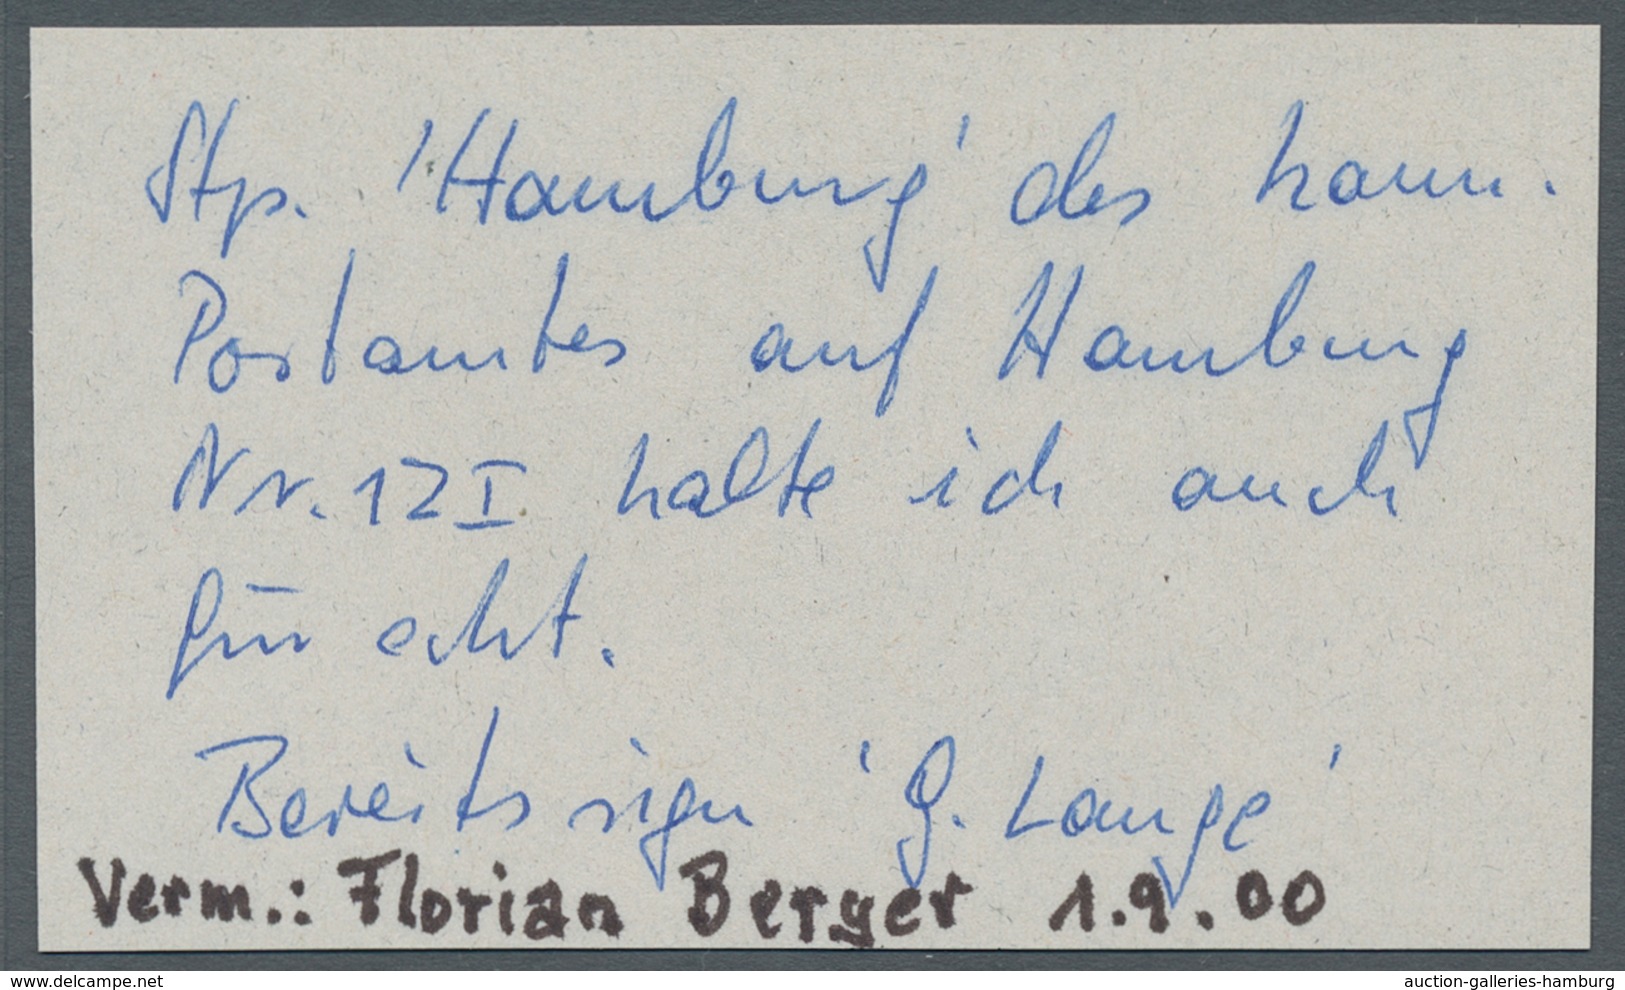 Stp. 'Hamburg' des hann.
Postamtes auf Hamburg
Nr. 12 I halte ich auch
für echt.
Bereits sign 'G. Lange'
Verm.: Florian Berger 1.9.00
www.delcampe.net
auction-galleries-hamburg